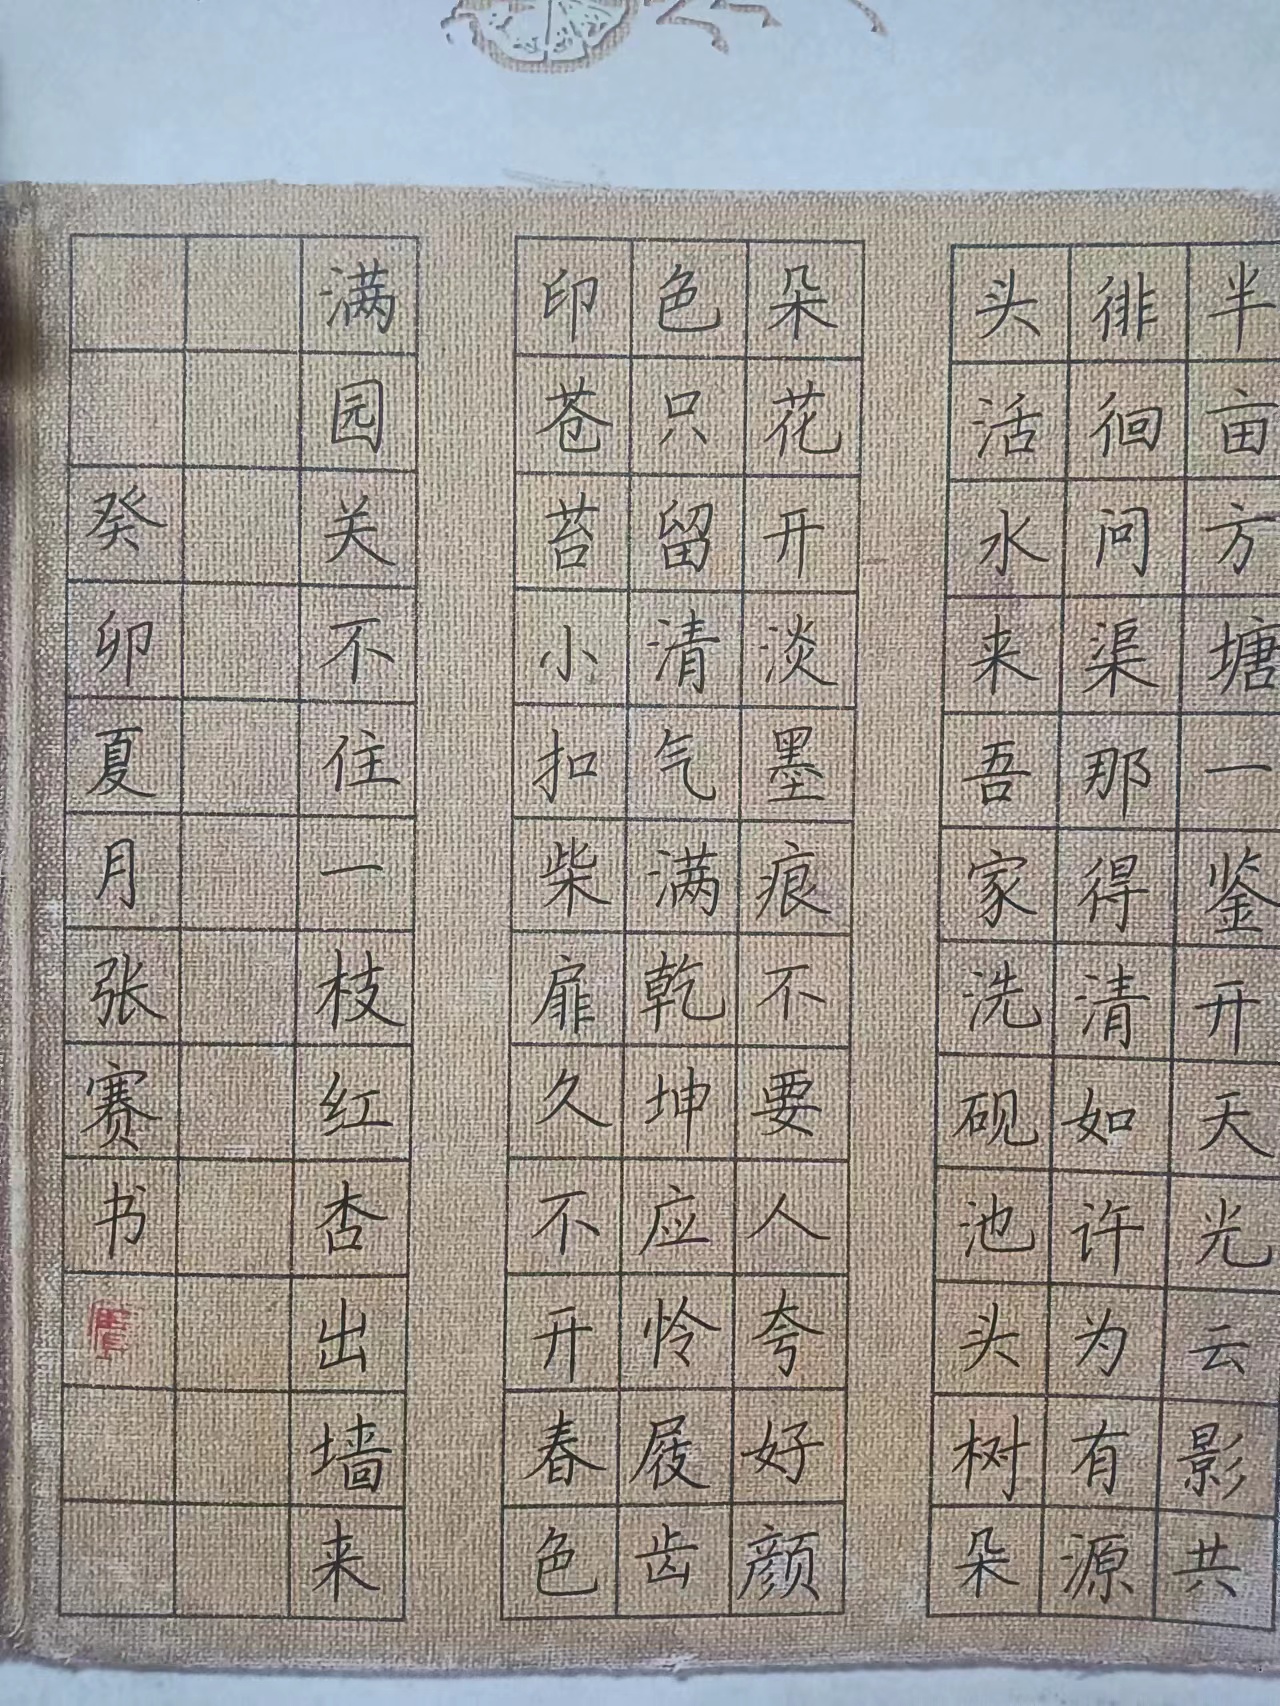 半亩方塘一鉴开天光云影共
徘徊问渠那得清如许为有源
头活水来吾家洗砚池头树朵
朵花开淡墨痕不要人夸好颜
色只留清气满乾坤应怜屐齿
印苍苔小扣柴扉久不开春色
满园关不住一枝红杏出墙来
癸卯夏月张赛书